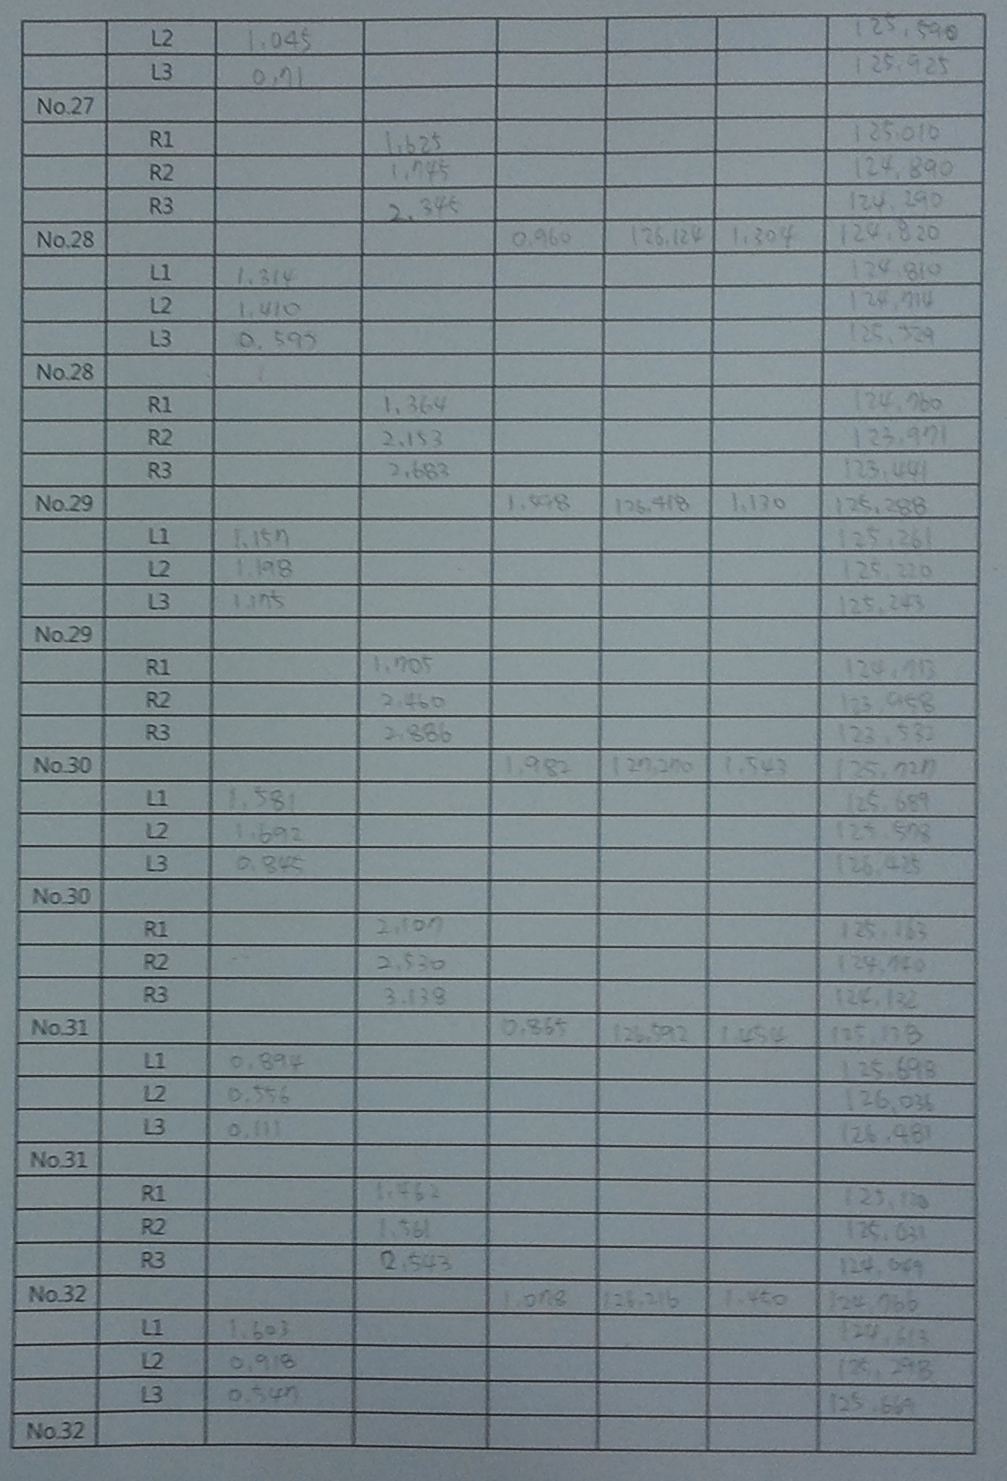 L2 1.045 125.590
L3 0.71 125.925
No.27
R1 1.625 125.010
R2 1.745 124.890
R3 2.345 124.290
No.28 0.960 126.124 1.304 124.820
L1 1.314 124.810
L2 1.410 124.714
L3 0.595 125.529
No.28
R1 1.364 124.760
R2 2.153 123.971
R3 2.683 123.441
No.29 1.598 126.418 1.130 125.288
L1 1.157 125.261
L2 1.198 125.220
L3 1.175 125.243
No.29
R1 1.705 124.713
R2 2.460 123.958
R3 2.886 123.532
No.30 1.982 127.270 1.543 125.727
L1 1.581 125.689
L2 1.692 125.578
L3 0.845 126.425
No.30
R1 2.107 125.163
R2 2.530 124.740
R3 3.138 124.132
No.31 0.865 126.592 1.454 125.138
L1 0.894 125.698
L2 0.556 126.036
L3 0.111 126.481
No.31
R1 1.462 125.130
R2 1.561 125.031
R3 2.543 124.049
No.32 1.078 126.216 1.450 124.766
L1 1.603 124.613
L2 0.918 125.298
L3 0.547 125.669
No.32